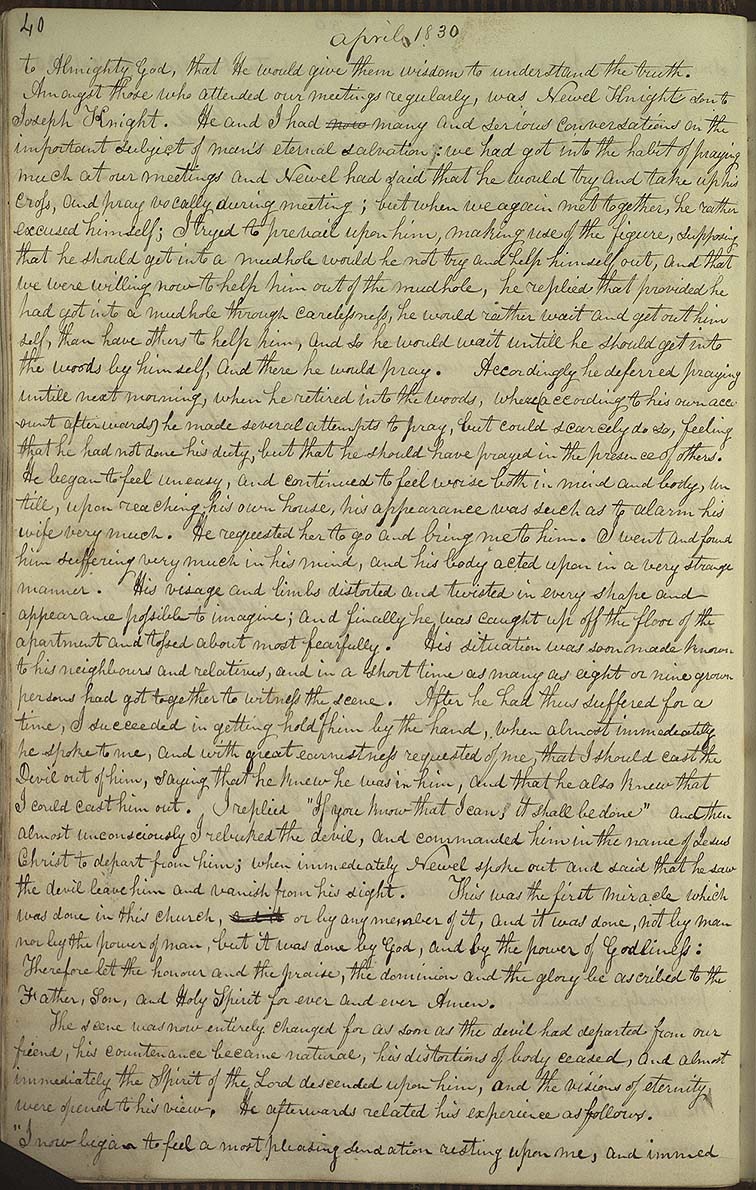 40
april 1830
to Almighty God, that He would give them wisdom to understand the truth.
Amongst those who attended our meetings regularly, was Newel Knight son to
Joseph Knight. He and I had now many and serious conversations on the
important subject of man's eternal salvation: we had got into the habit of praying
much at our meetings and Newel had said that he would try and take up his
cross, and pray vocally during meeting; but when we again met together, he rather
excused himself; I tryed to prevail upon him, making use of the figure, supposing
that he should get into a mudhole would he not try and help himself out, and that
we were willing now to help him out of the mudhole, he replied that provided he
had got into a mudhole through carelessness, he would rather wait and get out him
self, than have others to help him, and so he would wait untill he should get into
the woods by himself, and there he would pray. Accordingly he deferred praying
untill next morning, when he retired into the woods, where (according to his own acc
ount afterwards) he made several attempts to pray, but could scarcely do so, feeling
that he had not done his duty, but that he should have prayed in the presence of others.
He began to feel uneasy, and continued to feel worse both in mind and body, un
till, upon reaching his own house, his appearance was such as to alarm his
wife very much. He requested her to go and bring me to him. I went and found
him suffering very much in his mind, and his body acted upon in a very strange
manner. His visage and limbs distorted and twisted in every shape and
appearance possible to imagine; and finally he was caught up off the floor of the
apartment and tossed about most fearfully. His situation was soon made known
to his neighbours and relatives, and in a short time as many as eight or nine grown
persons had got together to witness the scene. After he had thus suffered for a
time, I succeeded in getting hold of him by the hand, when almost immediately
he spoke to me, and with great earnestness requested of me, that I should cast the
Devil out of him, saying that he knew he was in him, and that he also knew that
I could cast him out. I replied "If you know that I can, it shall be done" and then
almost unconsciously I rebuked the devil, and commanded him in the name of Jesus
Christ to depart from him; when immediately Newel spoke out and said that he saw
the devil leave him and vanish from his sight. This was the first miracle which
was done in this church, or by any member of it, and it was done, not by man
nor by the power of man, but it was done by God, and by the power of Godliness:
Therefore let the honour and the praise, the dominion and the glory be ascribed to the
Father, Son, and Holy Spirit for ever and ever Amen.
The scene was now entirely changed for as soon as the devil had departed from our
friend, his countenance became natural, his distortions of body ceased, and almost
immediately the Spirit of the Lord descended upon him, and the visions of eternity
were opened to his view. He afterwards related his experience as follows.
"I now began to feel a most pleasing sensation resting upon me, and immed